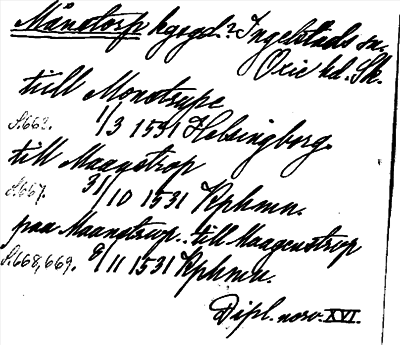 Månstorp kgsgd.? Ingelstads sn.
Oxie hd. Sk.
till Monotrype
S.663. 1/3 1531 Helsingborg.
till Maagstrop
S.667. 31/10 1531 Kphmn.
paa Maanstrup.. till Maagenstrop
S.668,669. 8/11 1531 Kphmn.
Dipl. norv. XVI.